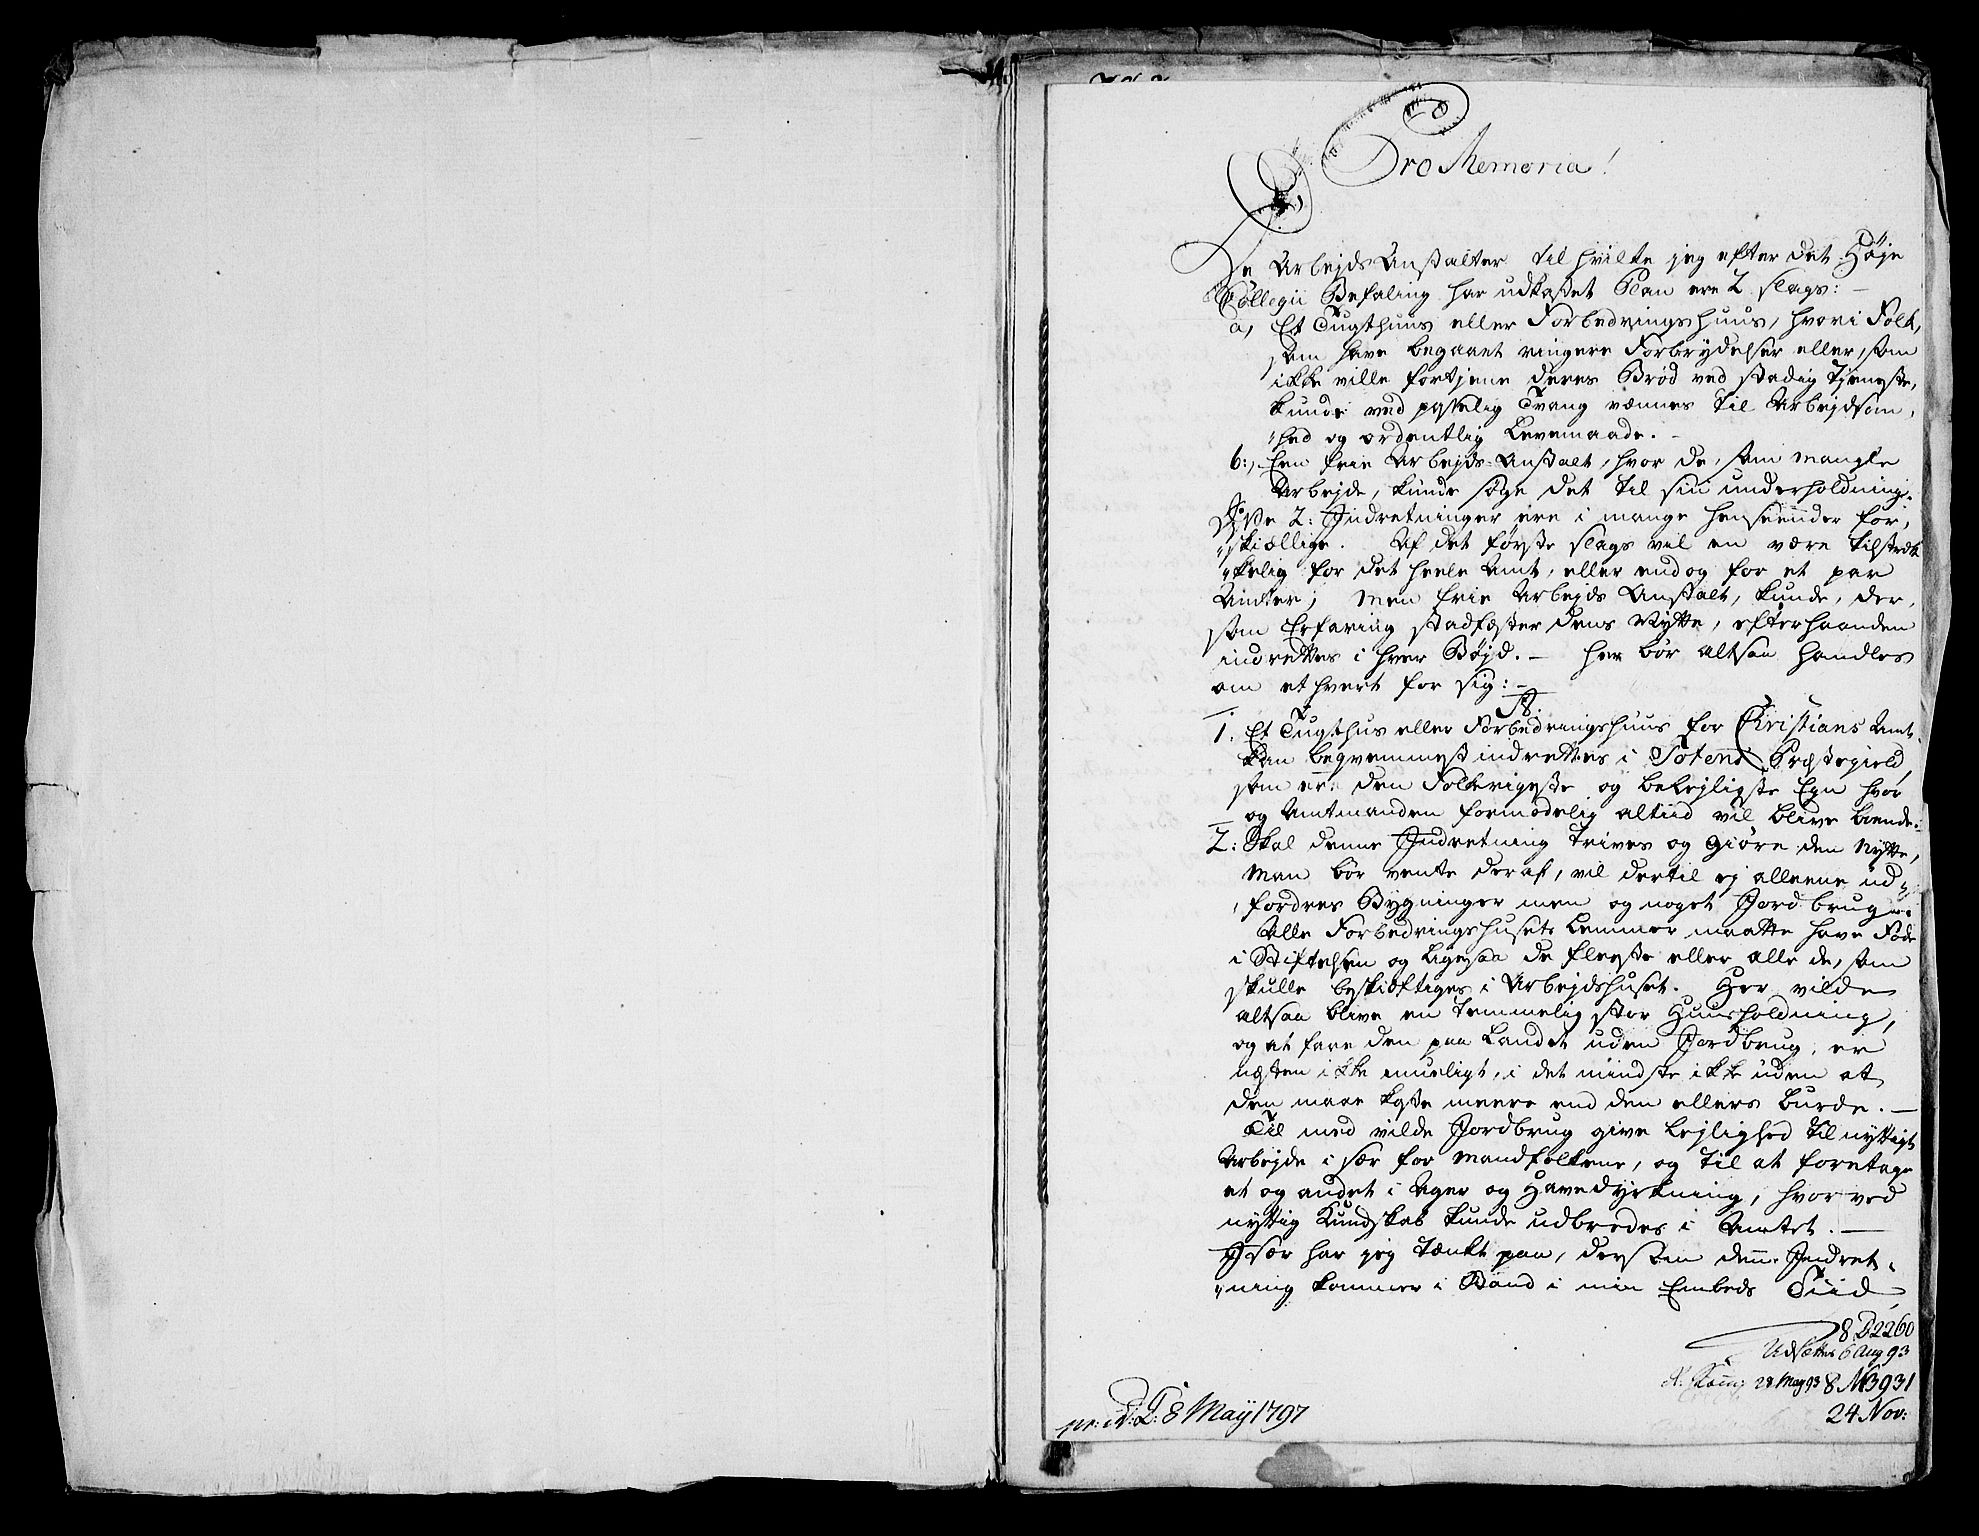 Pro Memoria!
De Arbejds Anstalter til hvilke jeg efter det Høje
Collegii Befaling har udkastet Plan ere 2 slags: —
a, Et Tugthuus eller Forbedringshuus, hvori Folk,
som have begaaet ringere Forbrydelser eller, som
ikke ville fortjene deres Brød ved stadig Tjeneste,
kunde ved passelig Tvang vænnes til Arbejdsom,
"hed og ordentlig Levemaade. —
b:, Een frie Arbejds-Anstalt, hvor de, som mangle
Arbejde, kunde søge det til sin underholdning.
Disse 2: Indretninger ere i mange henseender for,
"skiællige. Af det første slags vil en være tilstræk
"kelig for det heele Amt, eller endog for et par
Amter; Men frie Arbejds Anstalt, kunde, der,
som Erfaring stadfæster dens Nytte, efterhaanden
indrettes i hver Bøjd. — her bør altsaa handles
om ethvert for sig: —
A.
1. Et Tugthus eller Forbedringshuus for Christians Amt
kan beqvemmest indrettes i Totens Præstegield,
som er den Folkerigeste og belejligste Egn hvor
og Amtmanden formodelig altiid vil blive boende.
2: Skal denne Indretning trives og giøre den Nytte,
man bør vente deraf, vil dertil ej alleene ud,
"fordres Bygninger men og noget Jordbrug.
Alle Forbedringshusets Lemmer maatte have Føde
i Stiftelsen og ligesaa de fleste eller alle de, som
skulle beskiæftiges i Arbejdshuset. Her vilde
altsaa blive en temmelig stor Huusholdning,
og at føre den paa Landet uden Jordbrug, er
næsten ikke mueligt, i det mindste ikke uden at
den maae koste meere end den ellers burde. —
Til med vilde Jordbrug give Lejlighed til nyttigt
Arbejde i sær for Mandfolkene, og til at foretage
et og andet i Ager og Havedyrkning, hvorved
nyttig Kundskab kunde udbredes i Amtet. —
Isør har jeg tænkt paa, dersom denne Indret,
"ning kommer i Stand i min Embeds Tiid,
8. D2260
Udsættes 6 Aug 93
28 May 93 8 M3931
24 Nov:
pr: 8 Maÿ 1797